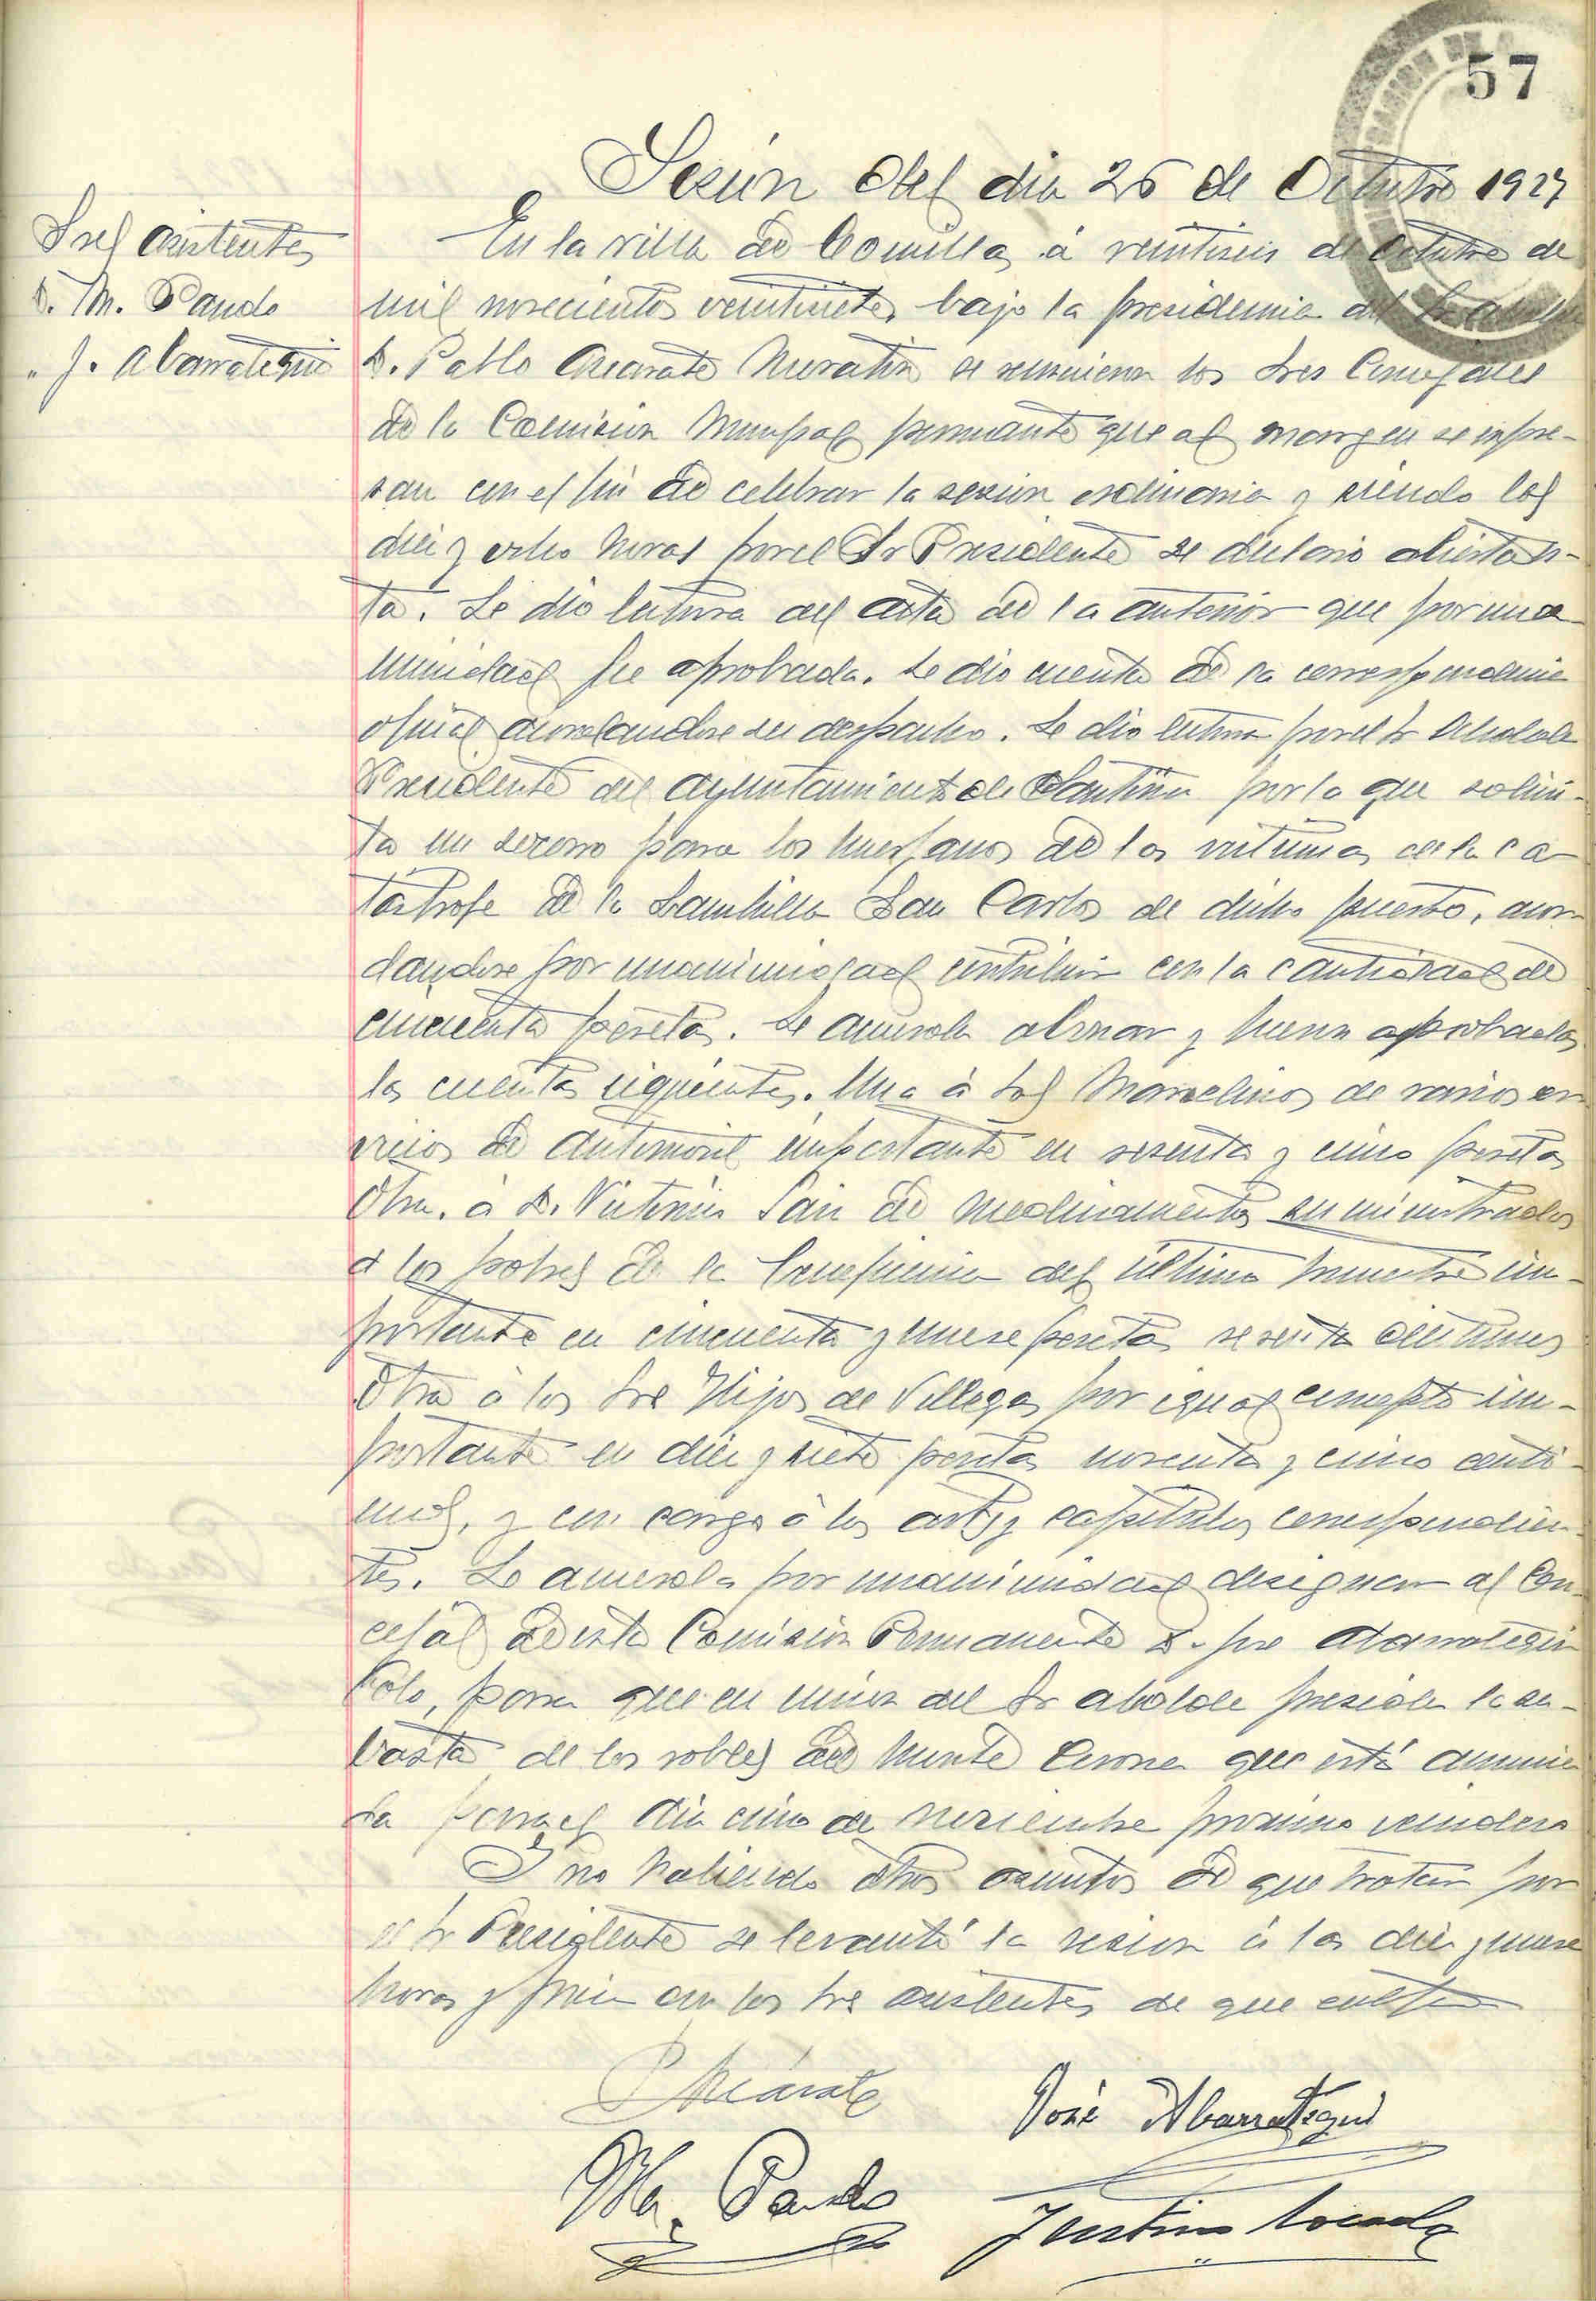 57
Sesión del dia 26 de Octubre 1927
Sres asistentes
D. M. Pando
" J. Abarrategui
En la villa de Comillas á veintiseis de Octubre de
mil novecientos veintisiete, bajo la presidencia del Sr Alcalde
D. Pablo se reunieron los Sres Concejales
de la Comisión Municipal permanente que al margen se expre-
san con el fin de celebrar la sesion ordinaria y siendo las
diez y ocho horas por el Sr Presidente se declaró abierta es-
ta. Se dio lectura del acta de la anterior que por una-
nimidad fue aprobada. Se dio cuenta de la correspondencia
oficial acordandose su despacho. Se dio lectura por el Sr Alcalde
Presidente del Ayuntamiento de por la que solici-
ta un socorro para los huerfanos de las victimas de la ca-
tástrofe de la San Carlos de dicho puerto, acor-
dandose por unanimidad contribuir con la cantidad de
cincuenta pesetas. Se acuerda abonar y fueron aprobadas
las cuentas siguientes. Una á de varios ser-
vicios de automovil importante en sesenta y cinco pesetas
Otra á D. de medicamentos suministrados
á los pobres de la Beneficencia del último trimestre im-
portante en cincuenta y nueve pesetas sesenta centimos
Otra á los Sres Hijos de Villegas por igual concepto im-
portante en diez y siete pesetas noventa y cinco centi-
mos, y con cargo á los arts y capitulos correspondien-
tes. Se acuerda por unanimidad designar al Con-
cejal de esta Comisión Permanente D. José Abarrategui
Polo, para que en unión del Sr Alcalde presida la su-
basta de los robles del Monte Corona que está anuncia
da para el dia cinco de Noviembre proximo venidero
Y no habiendo otros asuntos de que tratar por
el Sr Presidente se levantó la sesion á las diez y nueve
horas y firma con los Sres asistentes de que certifico
José Abarrategui
M. Pando
Justino